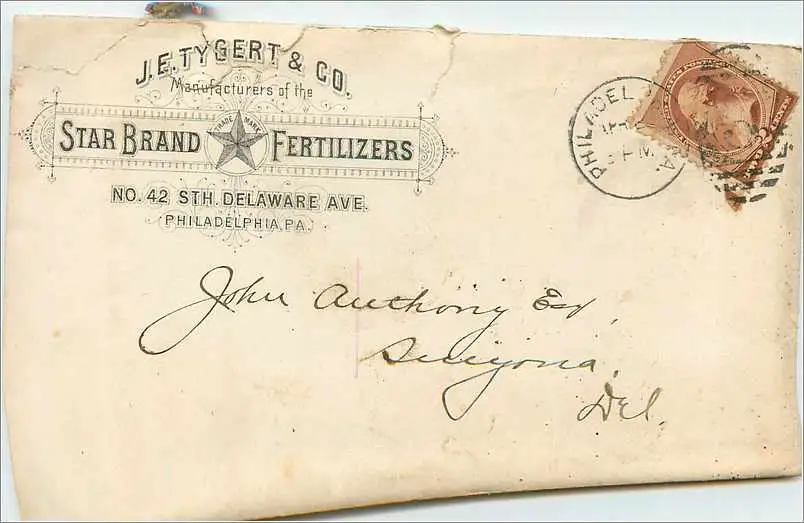 J. E. TYGERT & CO.
Manufacturers of the
STAR BRAND TRADE MARK FERTILIZERS
NO. 42 STH. DELAWARE AVE.
PHILADELPHIA, PA.
PHILADEL PA.
PM
John Anthony Esq
Smyrna,
Del.